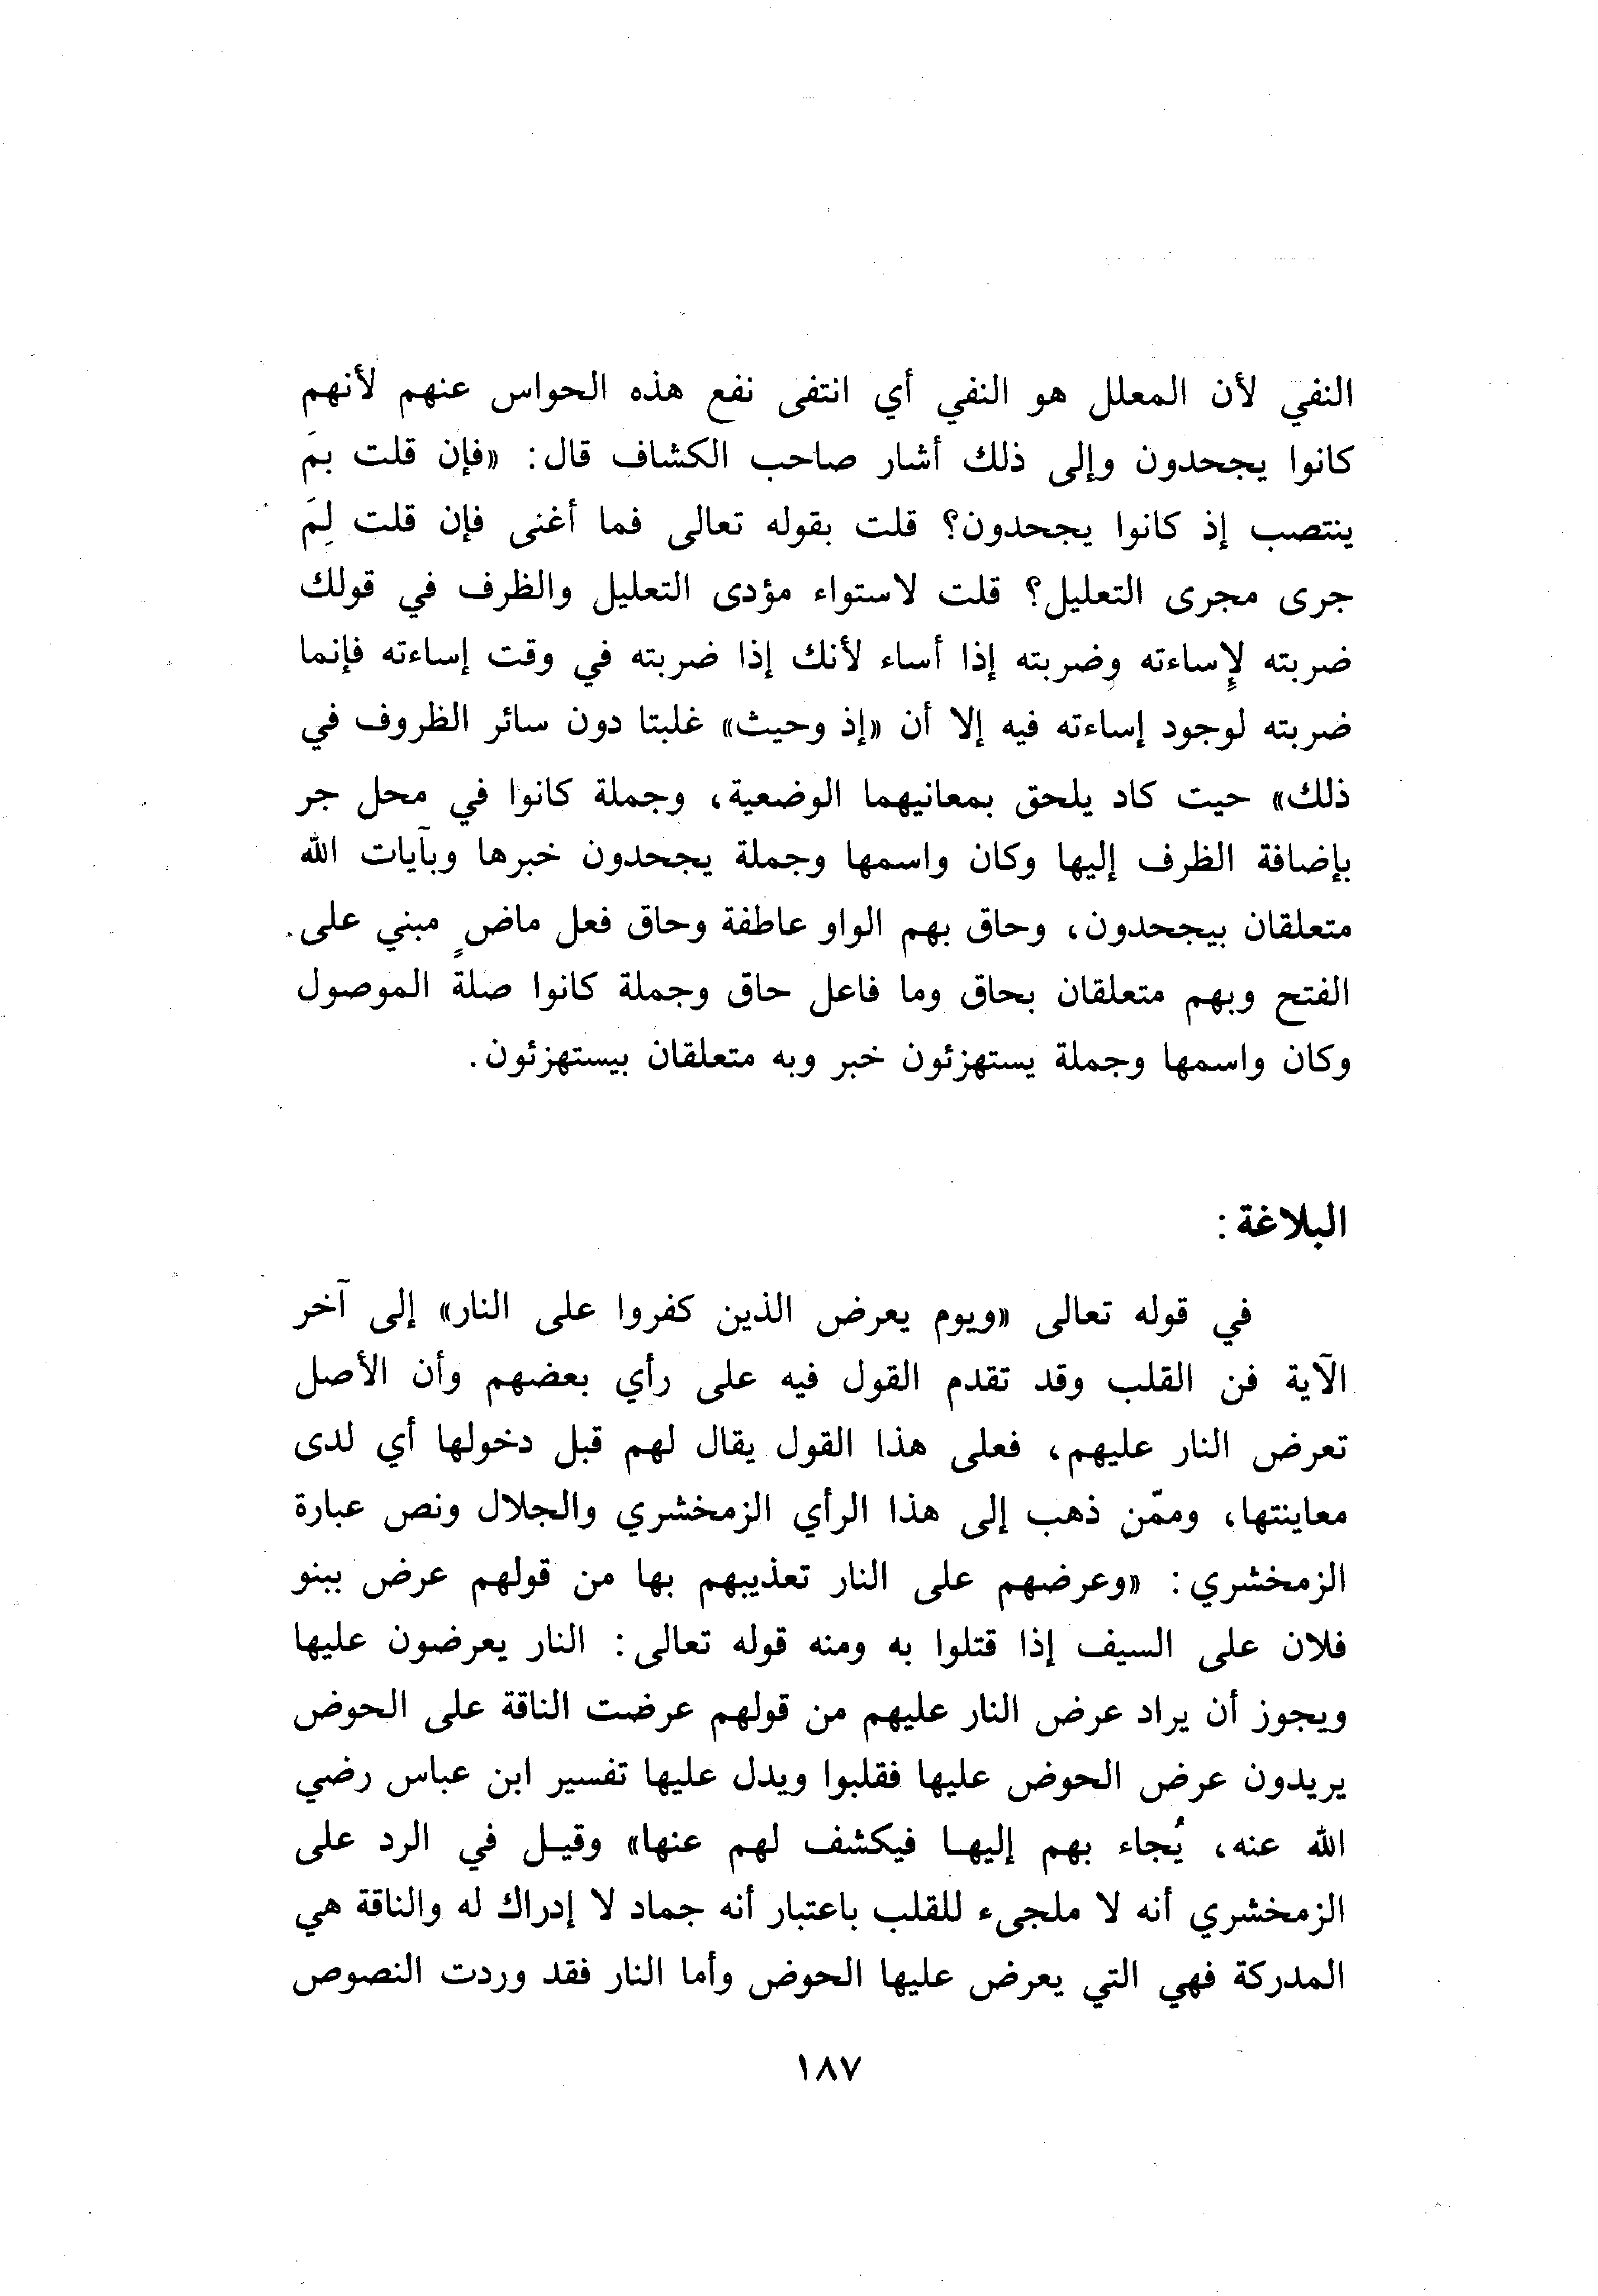 النفي لأن المعلل هو النفي أي انتفى نفع هذه الحواس عنهم لأنهم
كانوا يجحدون وإلى ذلك أشار صاحب الكشاف قال: «فإن قلت بمَ
ينتصب إذ كانوا يجحدون؟ قلت بقوله تعالى فما أغنى فإن قلت لِمَ
جرى مجرى التعليل؟ قلت لاستواء مؤدى التعليل والظرف في قولك
ضربته لإِساءته وضربته إذا أساء لأنك إذا ضربته في وقت إساءته فإنما
ضربته لوجود إساءته فيه إلا أن «إذ وحيث» غلبتا دون سائر الظروف في
ذلك» حيت كاد يلحق بمعانيهما الوضعية، وجملة كانوا في محل جر
بإضافة الظرف إليها وكان واسمها وجملة يجحدون خبرها وبآيات الله
متعلقان بيجحدون، وحاق بهم الواو عاطفة وحاق فعل ماضٍ مبني على
الفتح وبهم متعلقان بحاق وما فاعل حاق وجملة كانوا صلة الموصول
وكان واسمها وجملة يستهزئون خبر وبه متعلقان بيستهزئون.
البلاغة:
في قوله تعالى «ويوم يعرض الذين كفروا على النار» إلى آخر
الآية فن القلب وقد تقدم القول فيه على رأي بعضهم وأن الأصل
تعرض النار عليهم، فعلى هذا القول يقال لهم قبل دخولها أي لدى
معاينتها، وممّن ذهب إلى هذا الرأي الزمخشري والجلال ونص عبارة
الزمخشري: «وعرضهم على النار تعذيبهم بها من قولهم عرض ببنو
فلان على السيف إذا قتلوا به ومنه قوله تعالى: النار يعرضون عليها
ويجوز أن يراد عرض النار عليهم من قولهم عرضت الناقة على الحوض
يريدون عرض الحوض عليها فقلبوا ويدل عليها تفسير ابن عباس رضي
الله عنه، يُجاء بهم إليها فيكشف لهم عنها» وقيل في الرد على
الزمخشري أنه لا ملجىء للقلب باعتبار أنه جماد لا إدراك له والناقة هي
المدركة فهي التي يعرض عليها الحوض وأما النار فقد وردت النصوص
١٨٧